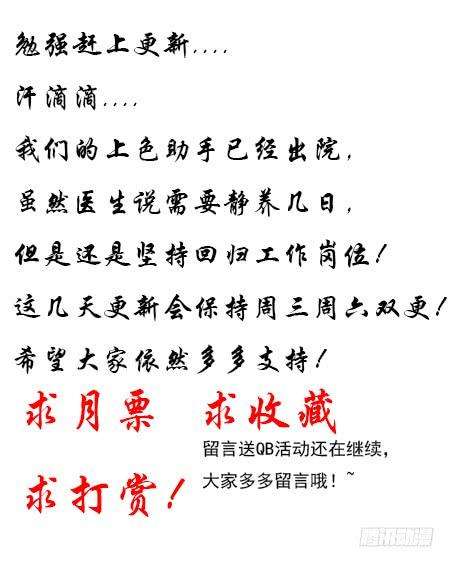 勉强赶上更新....
汗滴滴....
我们的上色助手已经出院,
虽然医生说需要静养几日,
但是还是坚持回归工作岗位!
这几天更新会保持周三周六双更!
希望大家依然多多支持!
求月票 求收藏
留言送QB活动还在继续,
大家多多留言哦!~
求打赏!
腾讯动漫